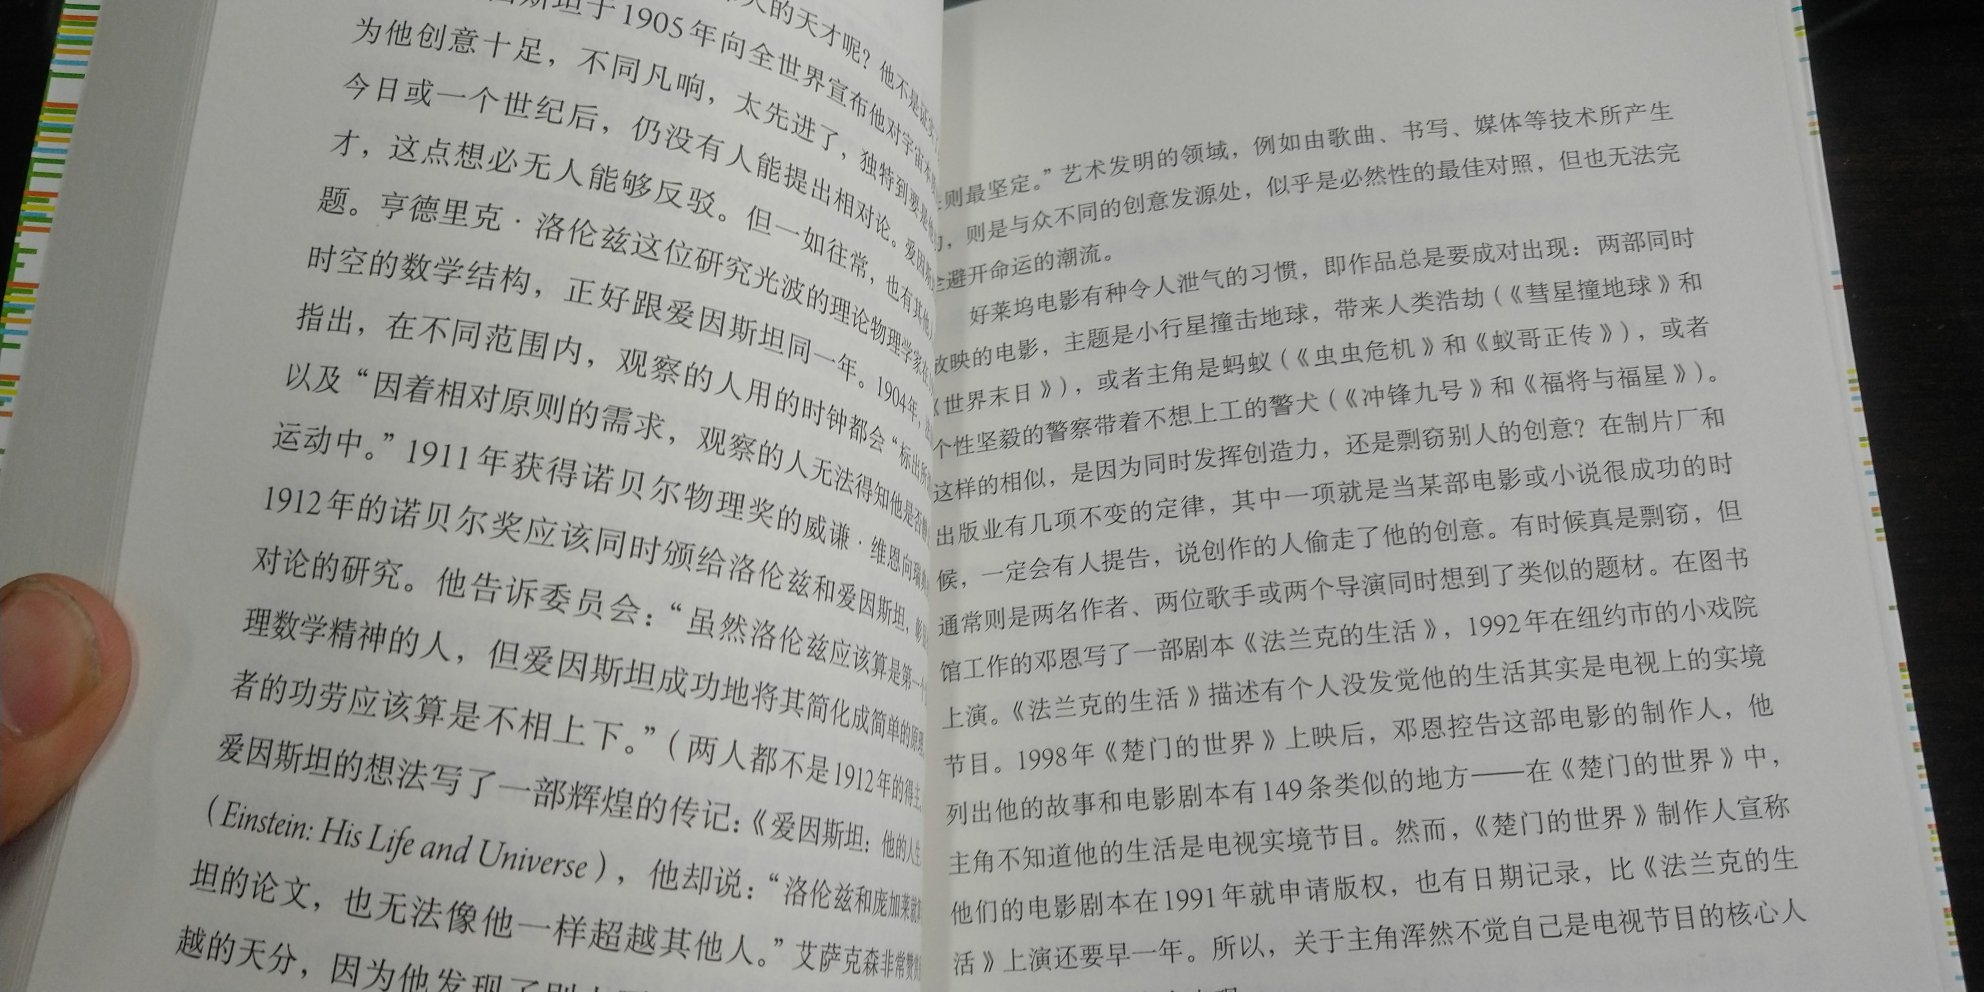 人的天才呢？他不是证实
因斯坦于1905年向全世界宣布他对宇宙本
为他创意十足，不同凡响，太先进了，独特到要是他
今日或一个世纪后，仍没有人能提出相对论。爱因斯
才，这点想必无人能够反驳。但一如往常，也有其他
题。亨德里克·洛伦兹这位研究光波的理论物理学家在
时空的数学结构，正好跟爱因斯坦同一年。1904年，
指出，在不同范围内，观察的人用的时钟都会“标出所
以及“因着相对原则的需求，观察的人无法得知他是否
运动中。”1911年获得诺贝尔物理奖的威谦·维恩向瑞典
1912年的诺贝尔奖应该同时颁给洛伦兹和爱因斯坦，
对论的研究。他告诉委员会：“虽然洛伦兹应该算是第一个
理数学精神的人，但爱因斯坦成功地将其简化成简单的原理
者的功劳应该算是不相上下。”（两人都不是1912年的得主
爱因斯坦的想法写了一部辉煌的传记：《爱因斯坦：他的人生
（Einstein: His Life and Universe），他却说：“洛伦兹和庞加莱就算
坦的论文，也无法像他一样超越其他人。”艾萨克森非常赞
越的天分，因为他发现了别
则最坚定。”艺术发明的领域，例如由歌曲、书写、媒体等技术所产生
，则是与众不同的创意发源处，似乎是必然性的最佳对照，但也无法完
避开命运的潮流。
好莱坞电影有种令人泄气的习惯，即作品总是要成对出现：两部同时
放映的电影，主题是小行星撞击地球，带来人类浩劫（《彗星撞地球》和
《世界末日》），或者主角是蚂蚁（《虫虫危机》和《蚁哥正传》），或者
个性坚毅的警察带着不想上工的警犬（《冲锋九号》和《福将与福星》）。
这样的相似，是因为同时发挥创造力，还是剽窃别人的创意？在制片厂和
出版业有几项不变的定律，其中一项就是当某部电影或小说很成功的时
候，一定会有人提告，说创作的人偷走了他的创意。有时候真是剽窃，但
通常则是两名作者、两位歌手或两个导演同时想到了类似的题材。在图书
馆工作的邓恩写了一部剧本《法兰克的生活》，1992年在纽约市的小戏院
上演。《法兰克的生活》描述有个人没发觉他的生活其实是电视上的实境
节目。1998年《楚门的世界》上映后，邓恩控告这部电影的制作人，他
列出他的故事和电影剧本有149条类似的地方——在《楚门的世界》中，
主角不知道他的生活是电视实境节目。然而，《楚门的世界》制作人宣称
他们的电影剧本在1991年就申请版权，也有日期记录，比《法兰克的生
活》上演还要早一年。所以，关于主角浑然不觉自己是电视节目的核心人